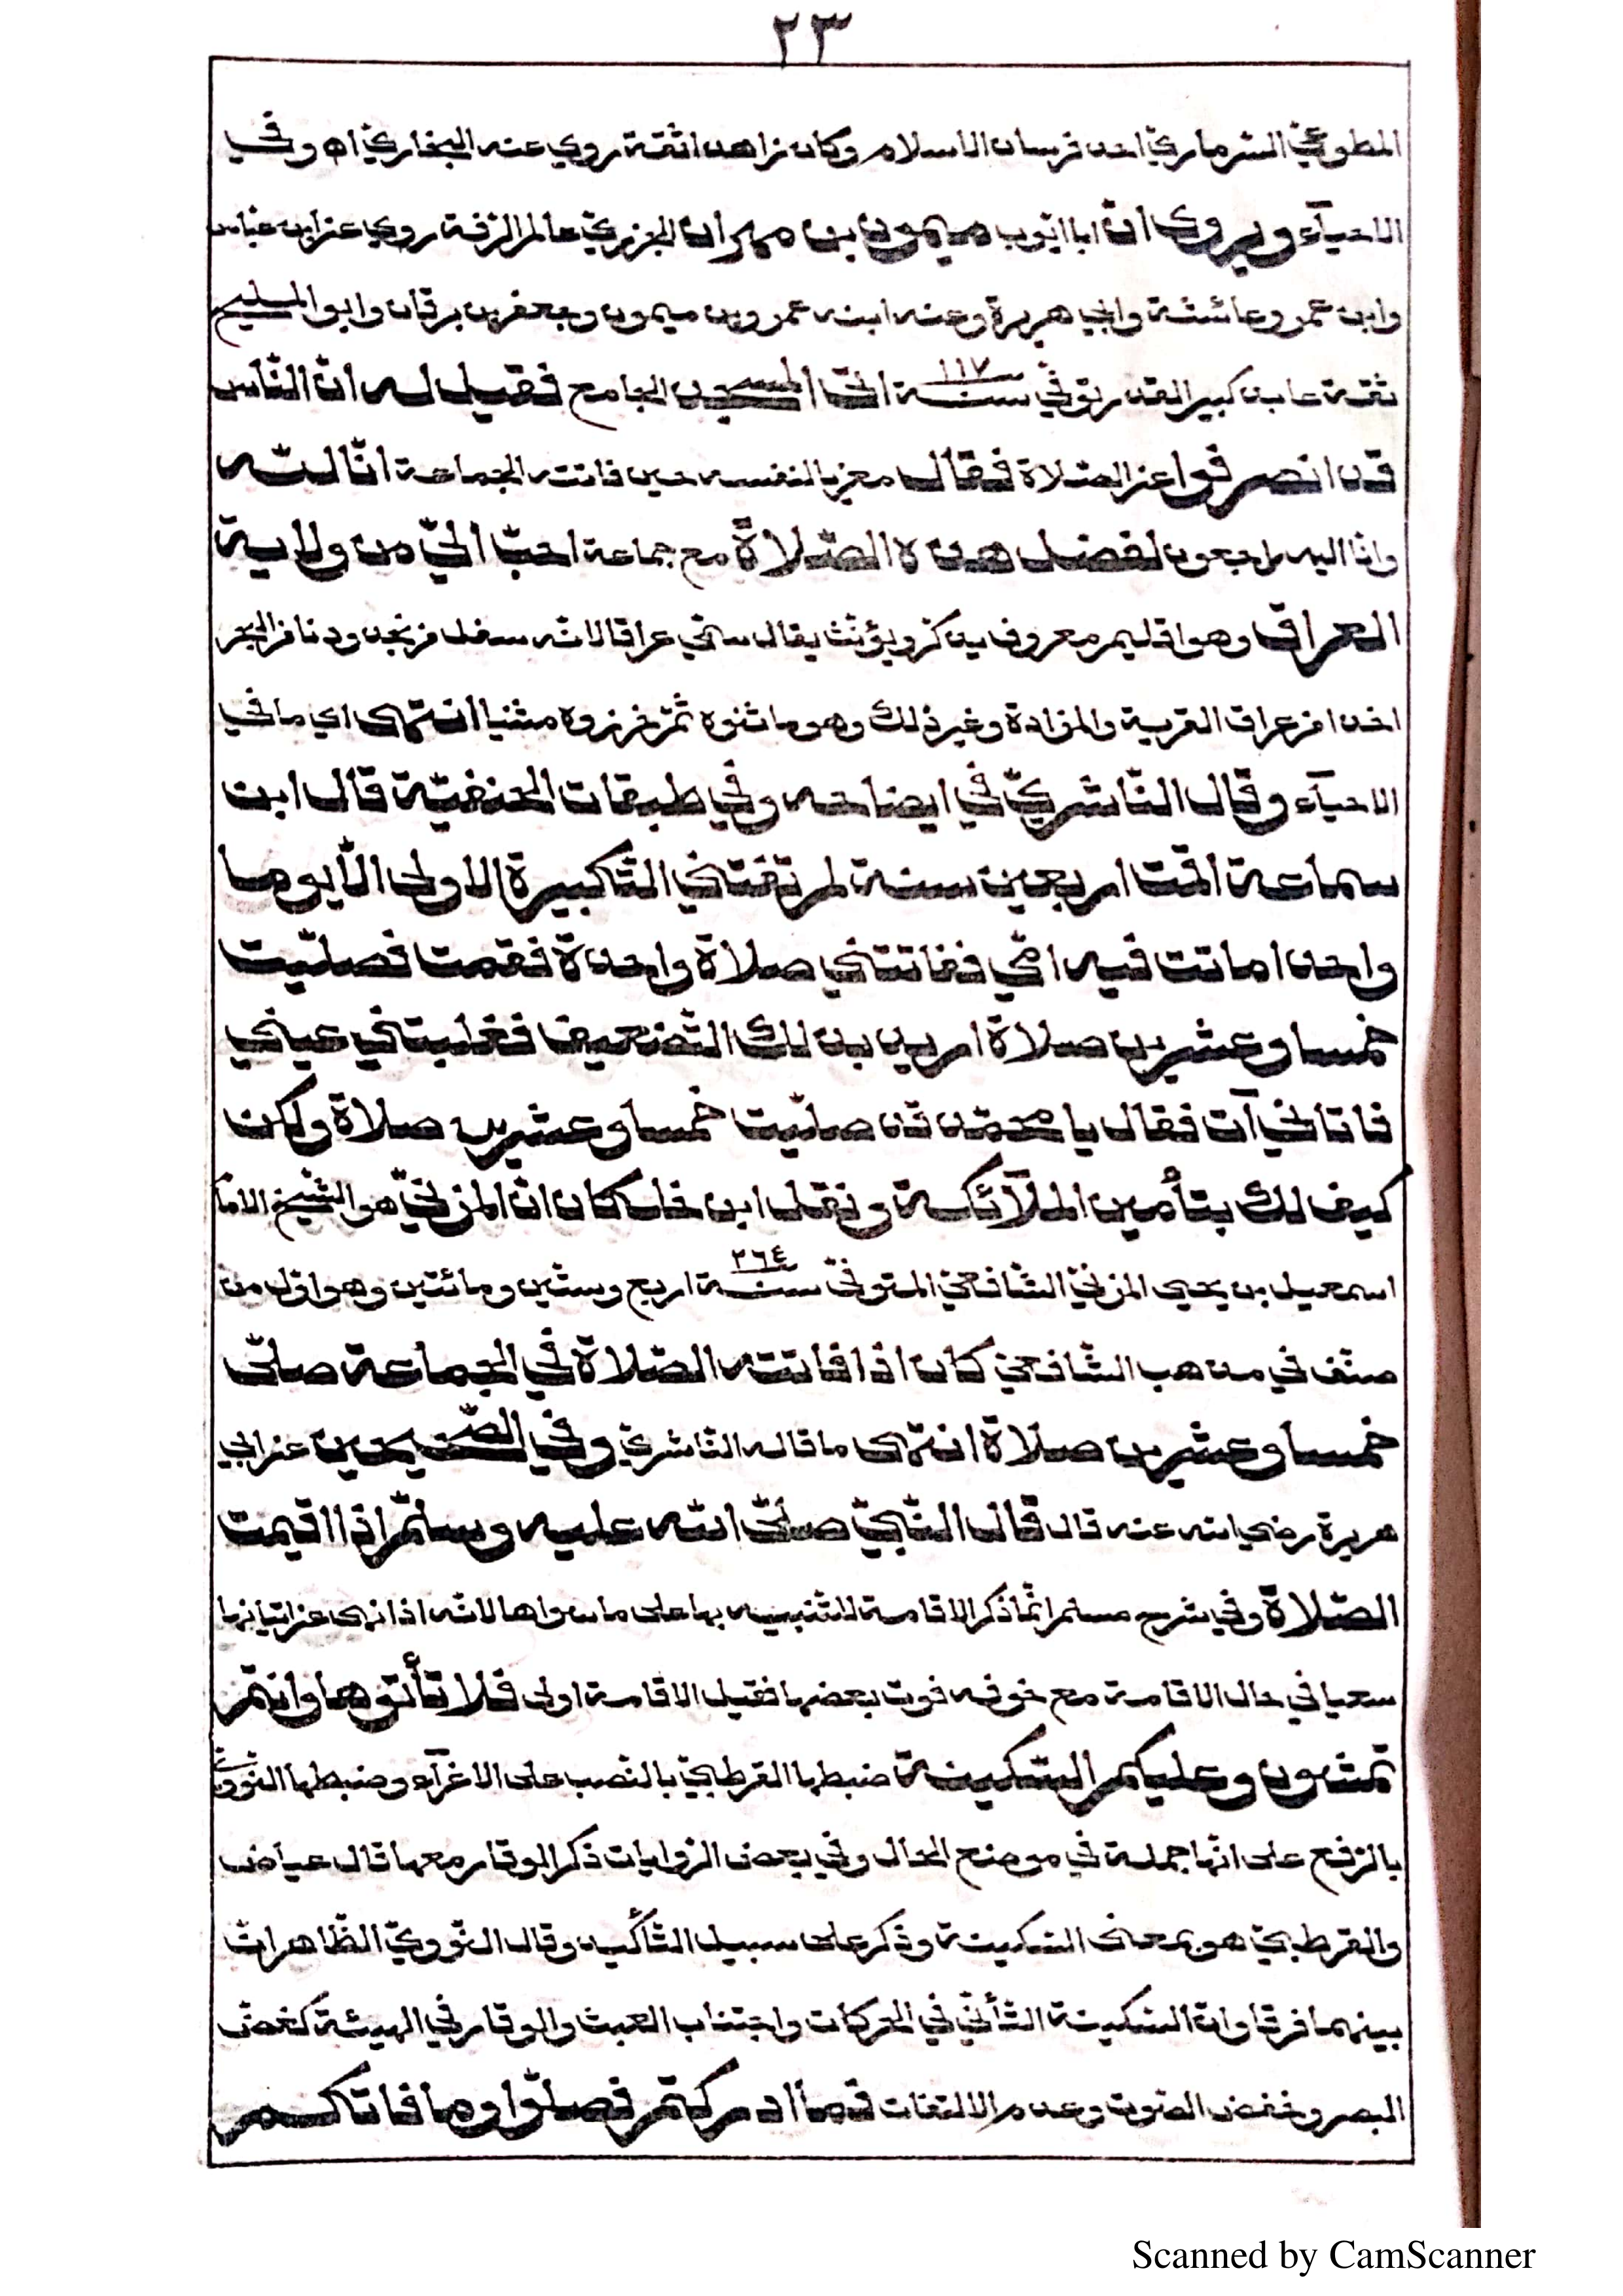 ٢٣
المطوعيّ السرماريّ احد فرسان الاسلام وكان زاهدا ثقة روي عنه البخاريّ اه وفي
الاحيآء ويروى انّ ابا ايّوب ميمون بن مهران الجزريّ عالم الرّقة روي عن ابن عبّاس
وابن عمر وعائشة وابي هريرة وعنه ابنه عمرو بن ميمون وجعفر بن برقان وابو المليح
ثقة عابد كبير القدر توفّي سنة ١١٧ اتى المسجد الجامع فقيل له انّ النّاس
قد انصرفوا عن الصّلاة فقال معزيا لنفسه حين فاتته الجماعة انّا للّه
وانّا اليه راجعون لفضل هذه الصّلاة مع جماعة احبّ اليّ من ولاية
العراق وهو اقليم معروف يذكر ويؤنّث يقال سمّي عراقا لانّه سفل عن نجد ودنا من البحر
اخذا من عراق القربة والمزادة وغير ذلك وهو ما ثنوه ثمّ خرزوه مثنيا انتهى اي ما في
الاحيآء وقال النّاشريّ في ايضاحه وفي طبقات الحنفيّة قال ابن
سماعة اقمت اربعين سنة لم تفتني التّكبيرة الاولى الّا يوما
واحدا ماتت فيه امّي ففاتتني صلاة واحدة فقمت فصلّيت
خمسا وعشرين صلاة اريد بذلك التّضعيف فغلبتني عيني
فاتاني آت فقال يا محمّد قد صلّيت خمسا وعشرين صلاة ولكن
كيف لك بتأمين الملآئكة ونقل ابن خلكان انّ المزنيّ هو الشّيخ الامام
اسمعيل بن يحيى المزنيّ الشّافعيّ المتوفّى سنة ٢٦٤ اربع وستّين ومائتين وهو اوّل من
صنّف في مذهب الشّافعيّ كان اذا فاتته الصّلاة في الجماعة صلّى
خمسا وعشرين صلاة انتهى ما قاله النّاشريّ وفي الصّحيحين عن ابي
هريرة رضي الله عنه قال قال النّبيّ صلّى اللّه عليه وسلّم اذا اقيمت
الصّلاة وفي شرح مسلم انّما ذكر الاقامة للتّنبيه بها على ما سواها لانّه اذا نهى عن اتيانها
سعيا في حال الاقامة مع خوفه فوت بعضها فقبل الاقامة اولى فلا تأتوها وانتم
تمشون وعليكم السّكينة ضبطها القرطبيّ بالنّصب على الاغرآء وضبطها النّوويّ
بالرّفع على انّها جملة في موضع الحال وفي بعض الرّوايات ذكر الوقار معها قال عياض
والقرطبيّ هو بمعنى السّكينة وذكر على سبيل التّأكيد وقال النّوويّ الظّاهر انّ
بينهما فرقا وانّ السّكينة التّأنّي في الحركات واجتناب العبث والوقار في الهيئة كغضّ
البصر وخفض الصّوت وعدم الالتفات فما ادركتم فصلّوا وما فاتكم
Scanned by CamScanner